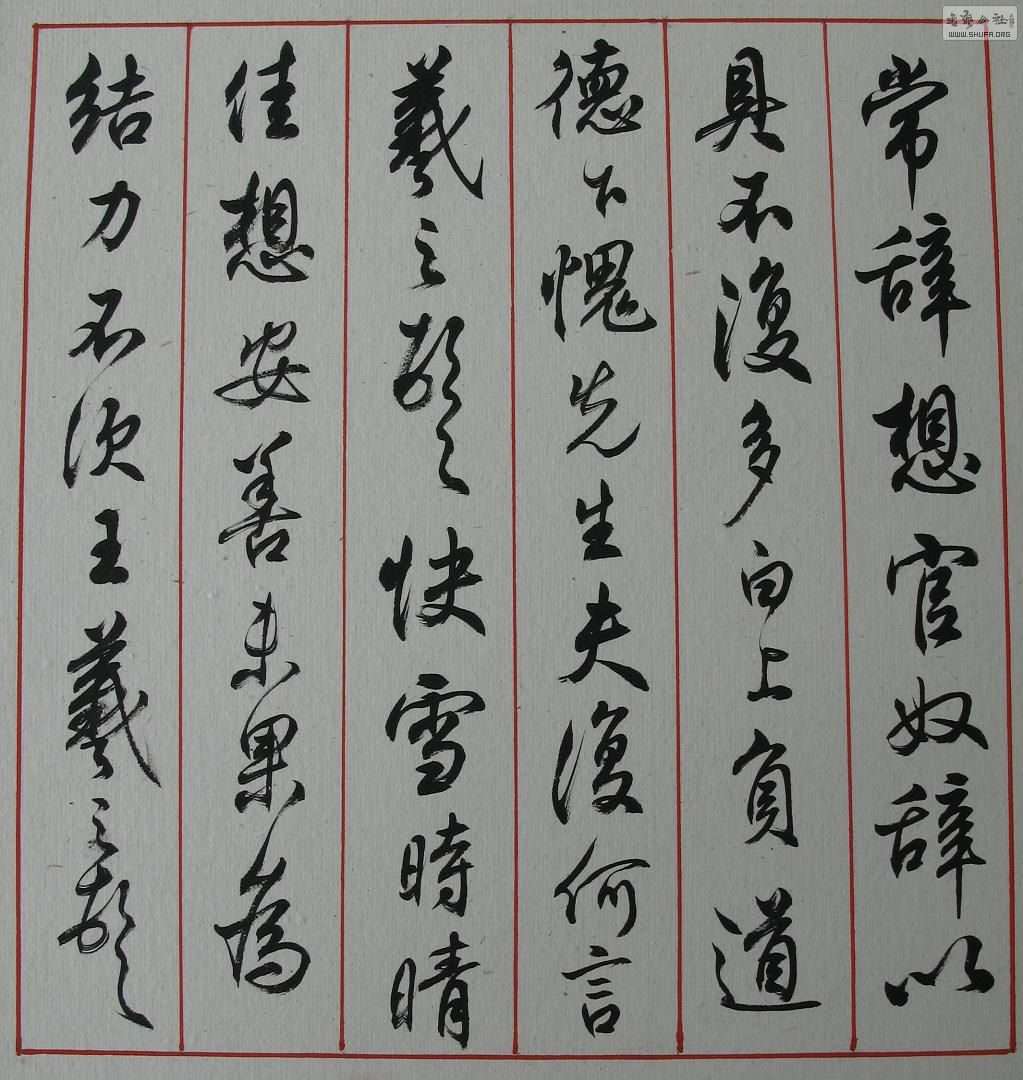 常辞想官奴辞以
具不復多白上負道
德下愧先生夫復何言
羲之頓首快雪時晴
佳想安善未果為
結力不次王羲之頓首
WWW.SHUFA.ORG